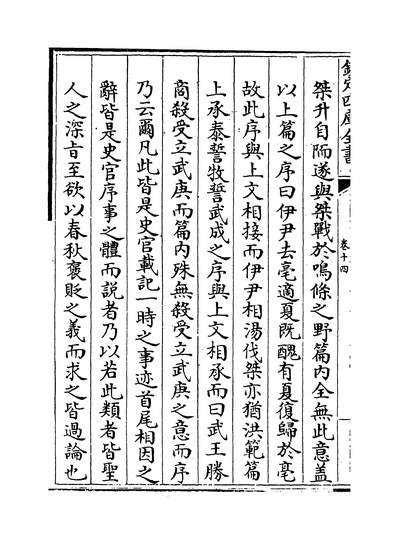 欽定四庫全書
卷十四
桀升自陑遂與桀戰於鳴條之野篇内全無此意蓋
以上篇之序曰伊尹去亳適夏既醜有夏復歸於亳
故此序與上文相接而伊尹相湯伐桀亦猶洪範篇
上承泰誓牧誓武成之序與上文相承而曰武王勝
商殺受立武庚而篇内殊無殺受立武庚之意而序
乃云爾凡此皆是史官載記一時之事迹首尾相因之
辭皆是史官序事之體而說者乃以若此類者皆聖
人之深㫖至欲以春秋褒貶之義而求之皆過論也